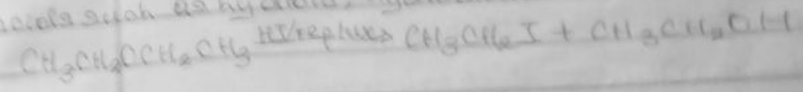 such as
CH₃CH₂OCH₂CH₃ HI/reflux> CH₃CH₂I + CH₃CH₂OH